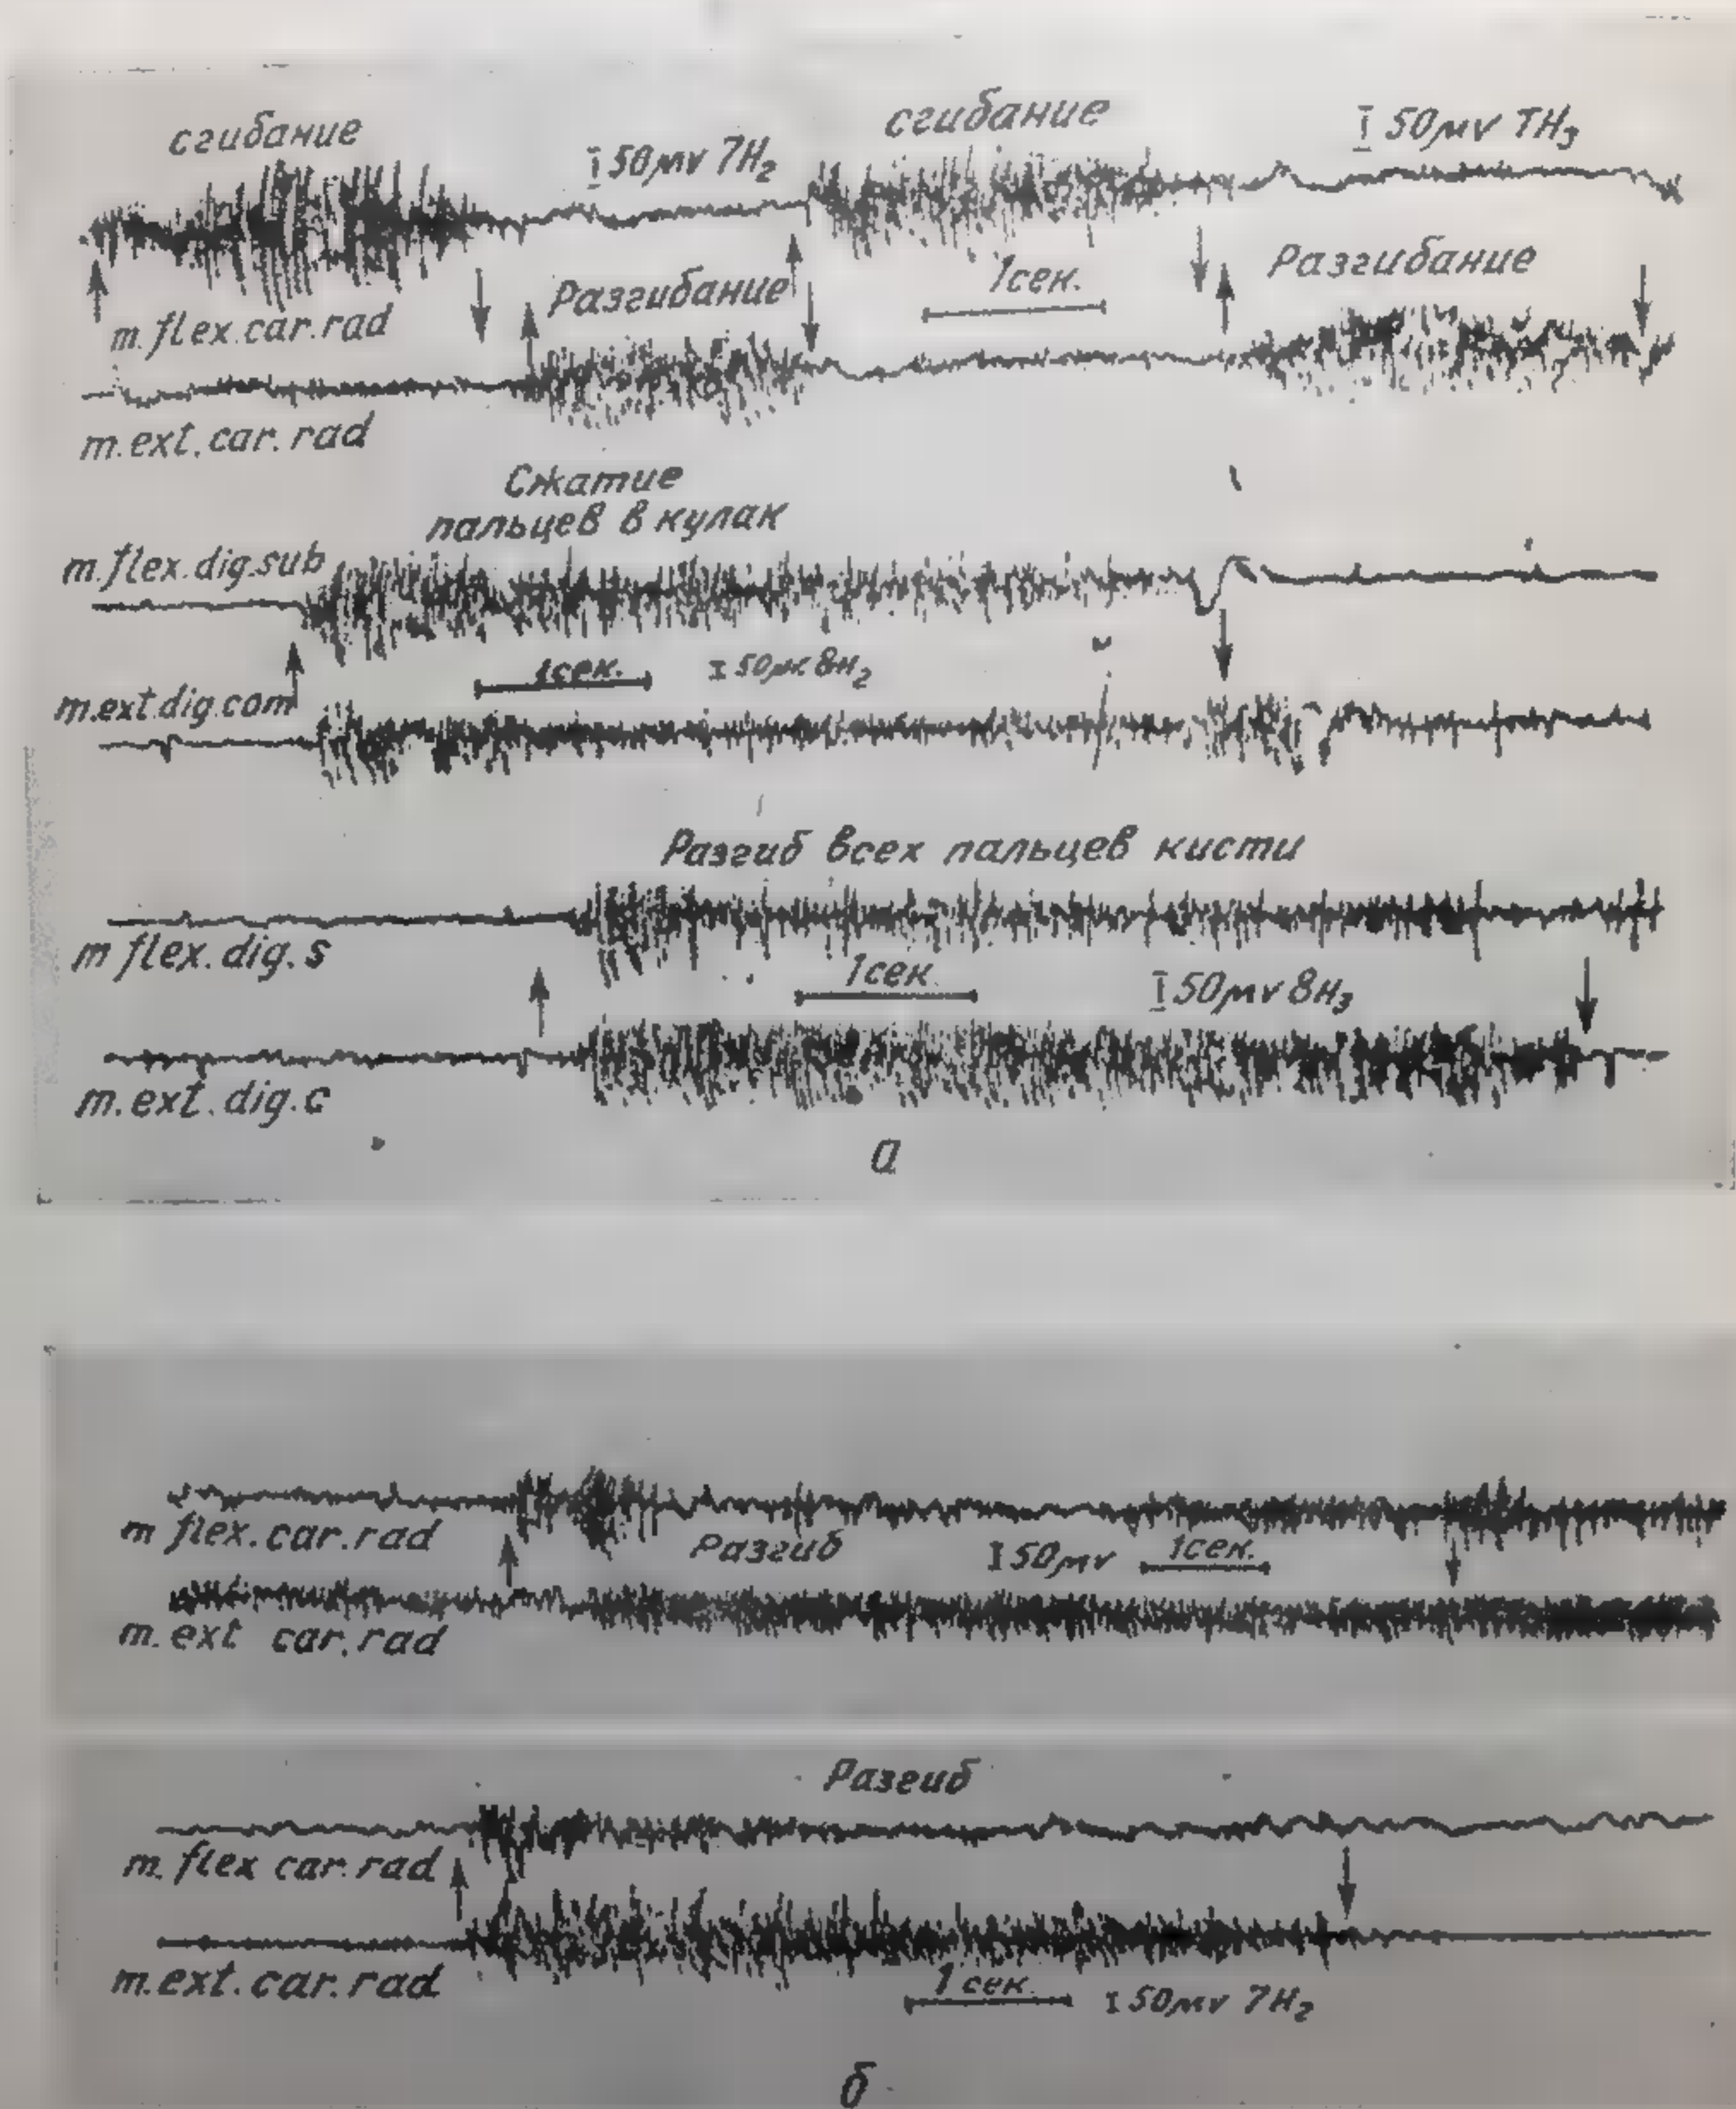 сгибание
I 50мv 7H2
сгибание
I 50мv TH3
Разгибание
1сек.
Разгибание
m.flex.car.rad
m.ext.car.rad
Сжатие
пальцев в кулак
m.flex.dig.sub
1сек.
I 50мк 8H2
m.ext.dig.com
Разгиб всех пальцев кисти
m flex.dig.s
1сек.
I 50мv 8H3
m.ext.dig.c
а
m flex.car.rad
Разгиб
I 50мv
1сек.
m.ext car.rad
Разгиб
m.flex car.rad
m.ext.car.rad
1 сек.
I 50мv 7H2
б